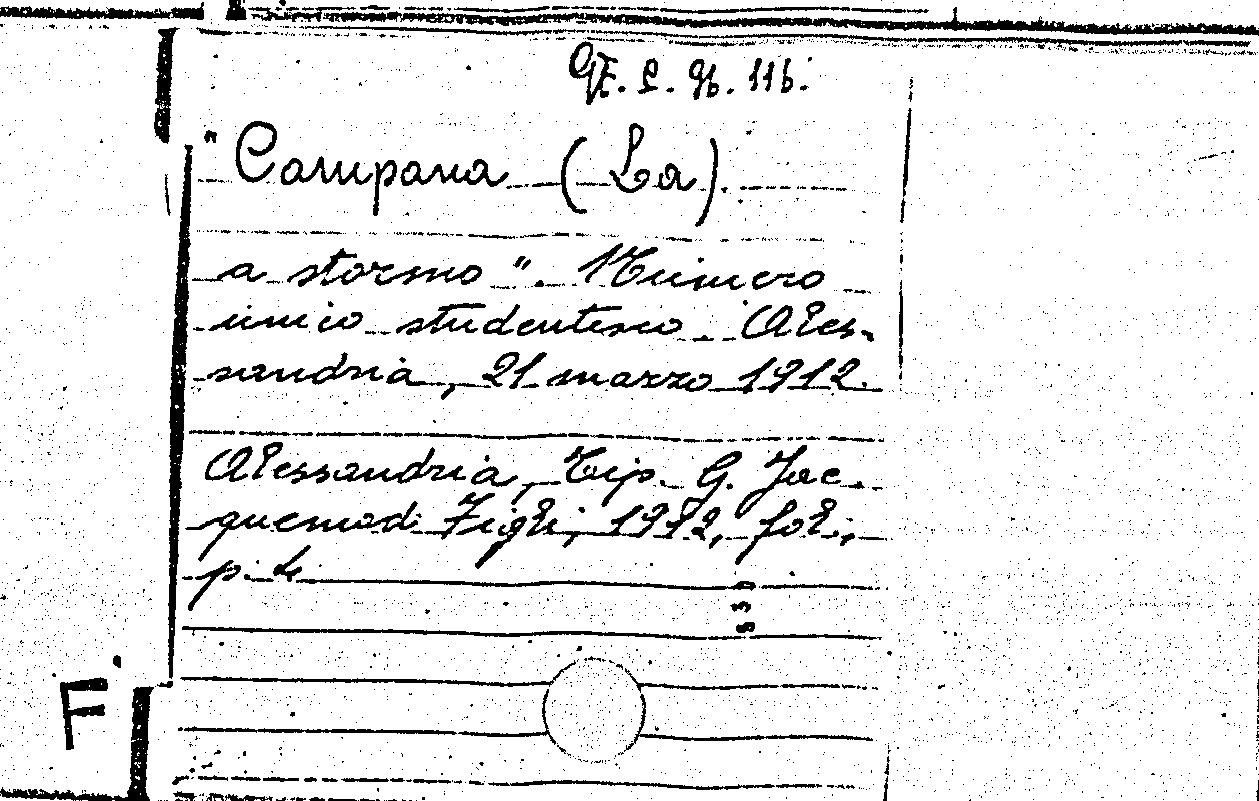 "Campana (La).
a stormo". Numero
unico studentesco. Ales-
sandria, 21 marzo 1912.
Alessandria, Tip. G. Jac-
quemod Figli, 1912, fol.,
p. 4
F